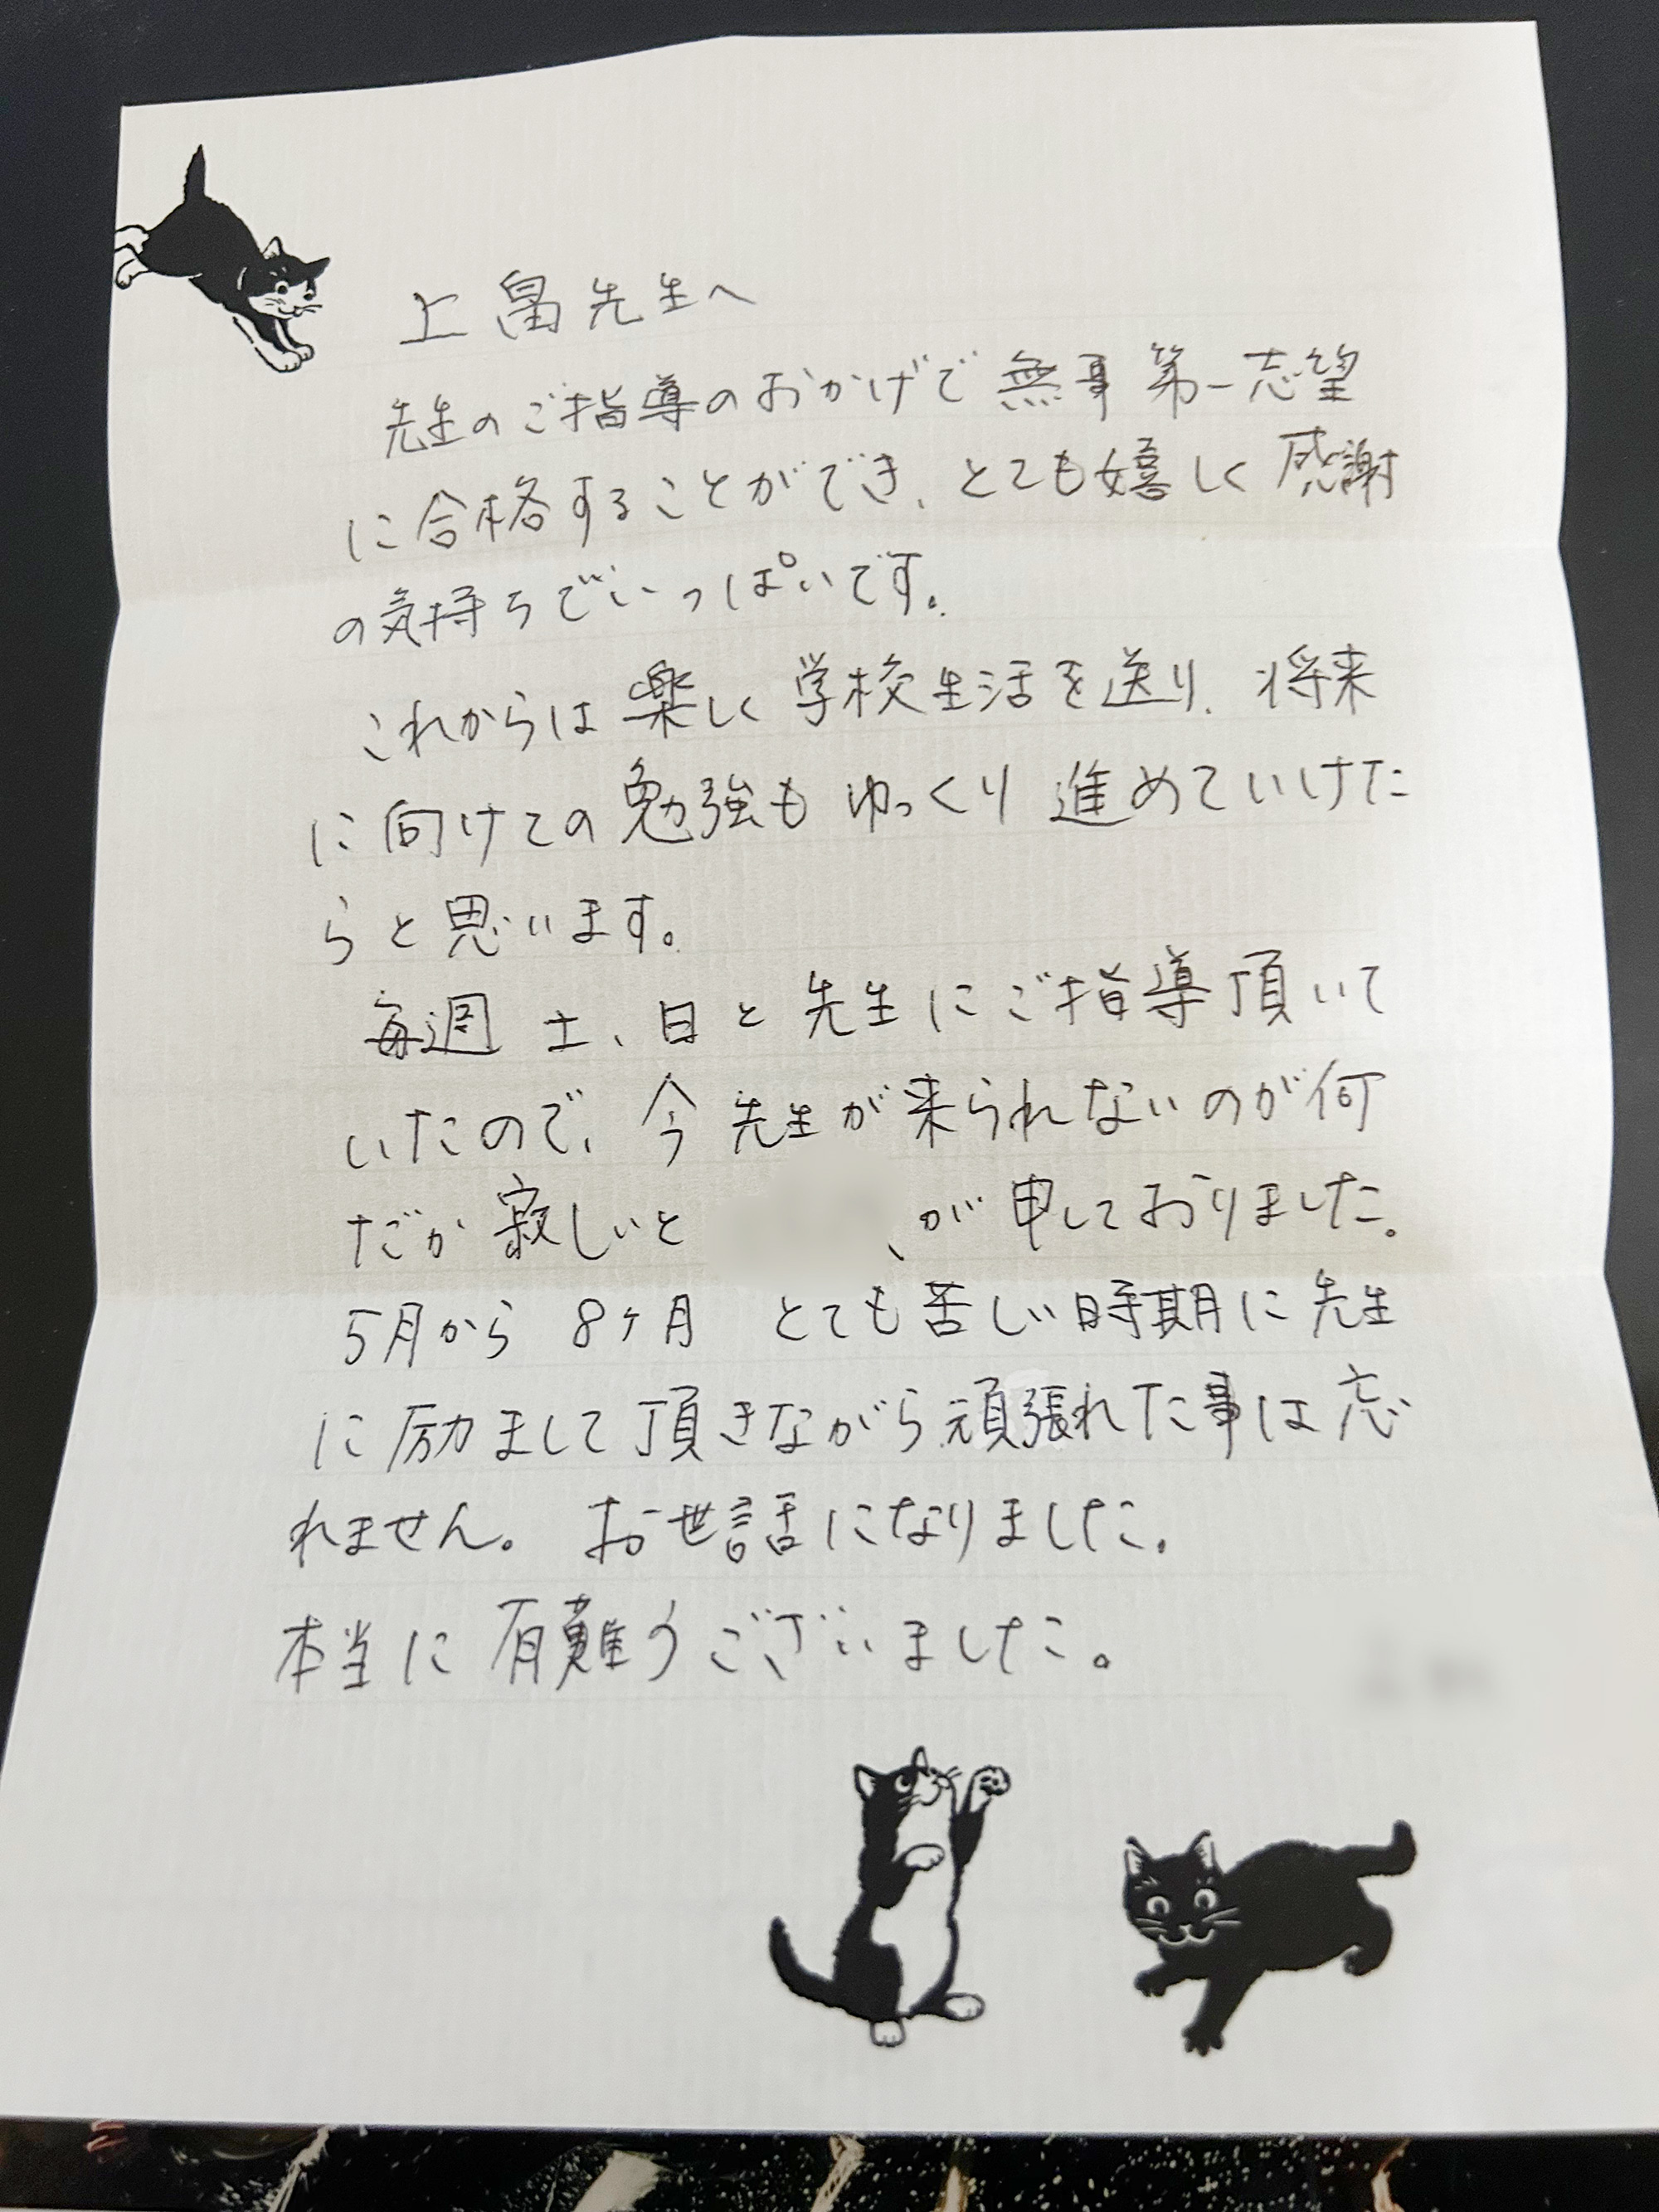 上畠先生へ
先生のご指導のおかげで無事第一志望
に合格することができ、とても嬉しく感謝
の気持ちでいっぱいです。
これからは楽しく学校生活を送り、将来
に向けての勉強もゆっくり進めていけた
らと思います。
毎週土、日と先生にご指導頂いて
いたので、今先生が来られないのが何
だか寂しいと が申しておりました。
5月から8ヶ月 とても苦しい時期に先生
に励まして頂きながら頑張れた事は忘
れません。お世話になりました。
本当に有難うございました。